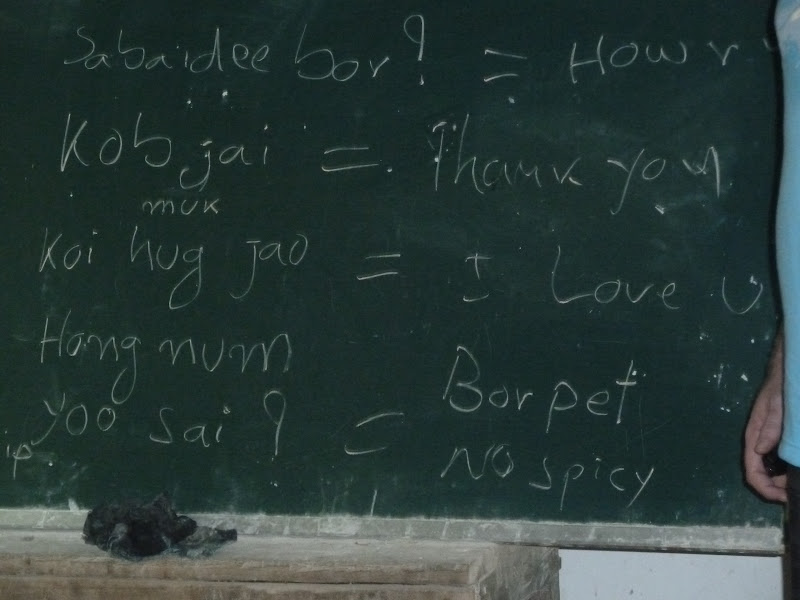 Sabaidee bor? = How r
Kob jai = Thank you
muk
Koi hug jao = I Love U
Hong num
yoo sai? = Bor pet
NO spicy
ip